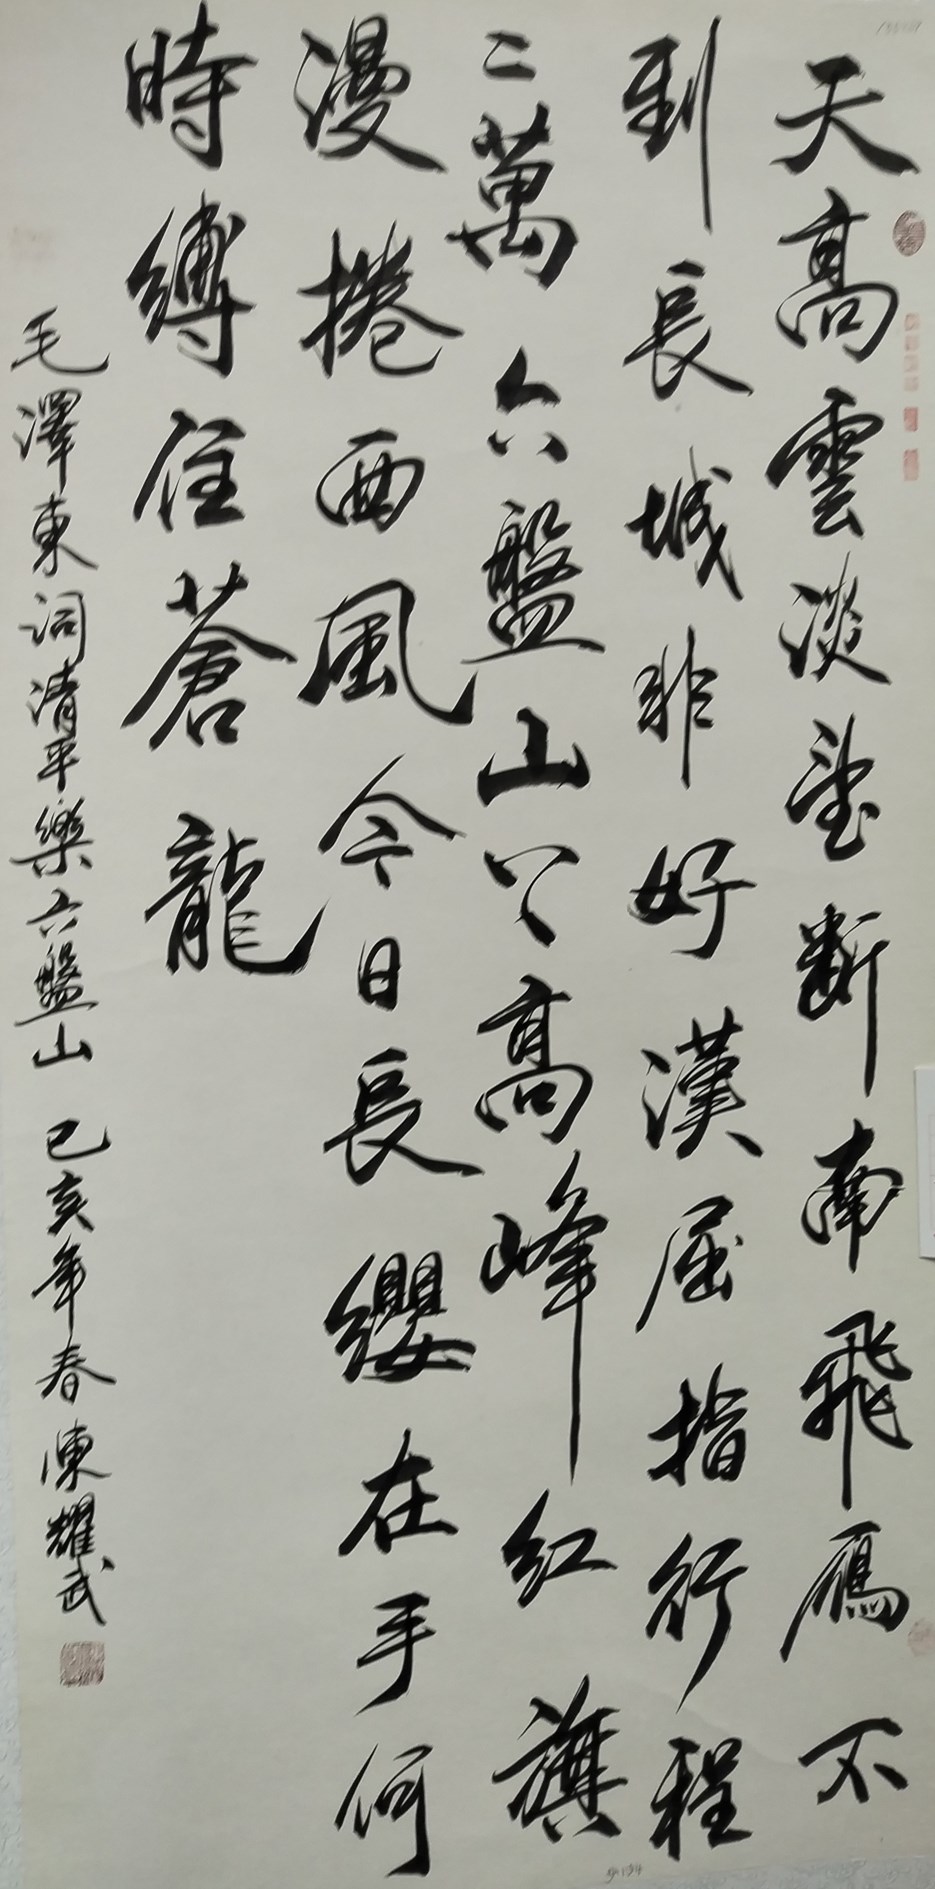 天高雲淡望斷南飛雁不
到長城非好漢屈指行程
二萬六盤山上高峰紅旗
漫捲西風今日長纓在手何
時縛住蒼龍
毛澤東詞清平樂六盤山 己亥年春陳耀武